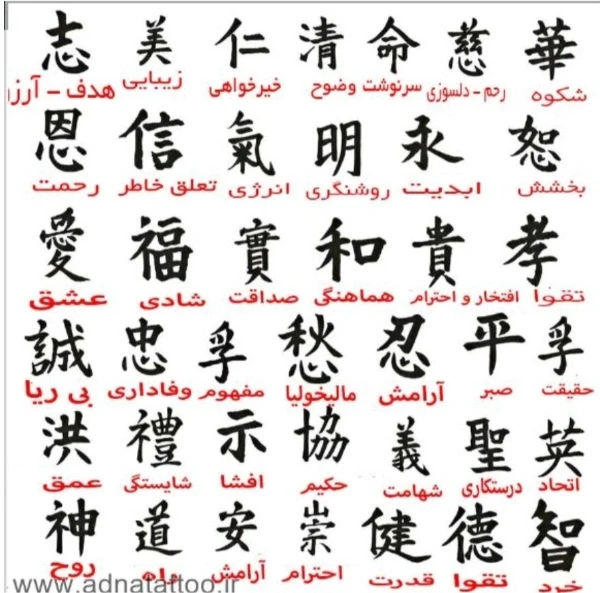 志 美 仁 清 命 慈 華
هدف - آرز زیبایی خیرخواهی وضوح سرنوشت رحم - دلسوزی شکوه
恩 信 氣 明 永 恕
رحمت تعلق خاطر انرژی روشنگری ابدیت بخشش
愛 福 實 和 貴 孝
عشق شادی صداقت هماهنگی افتخار و احترام تقوا
誠 忠 孚 愁 忍 平 孚
بی ریا وفاداری مفهوم مالیخولیا آرامش صبر حقیقت
洪 禮 示 協 義 聖 英
عمق شایستگی افشا حکیم شهامت درستکاری اتحاد
神 道 安 崇 健 德 智
روح راه آرامش احترام قدرت تقوا خرد
www.adnatattoo.ir